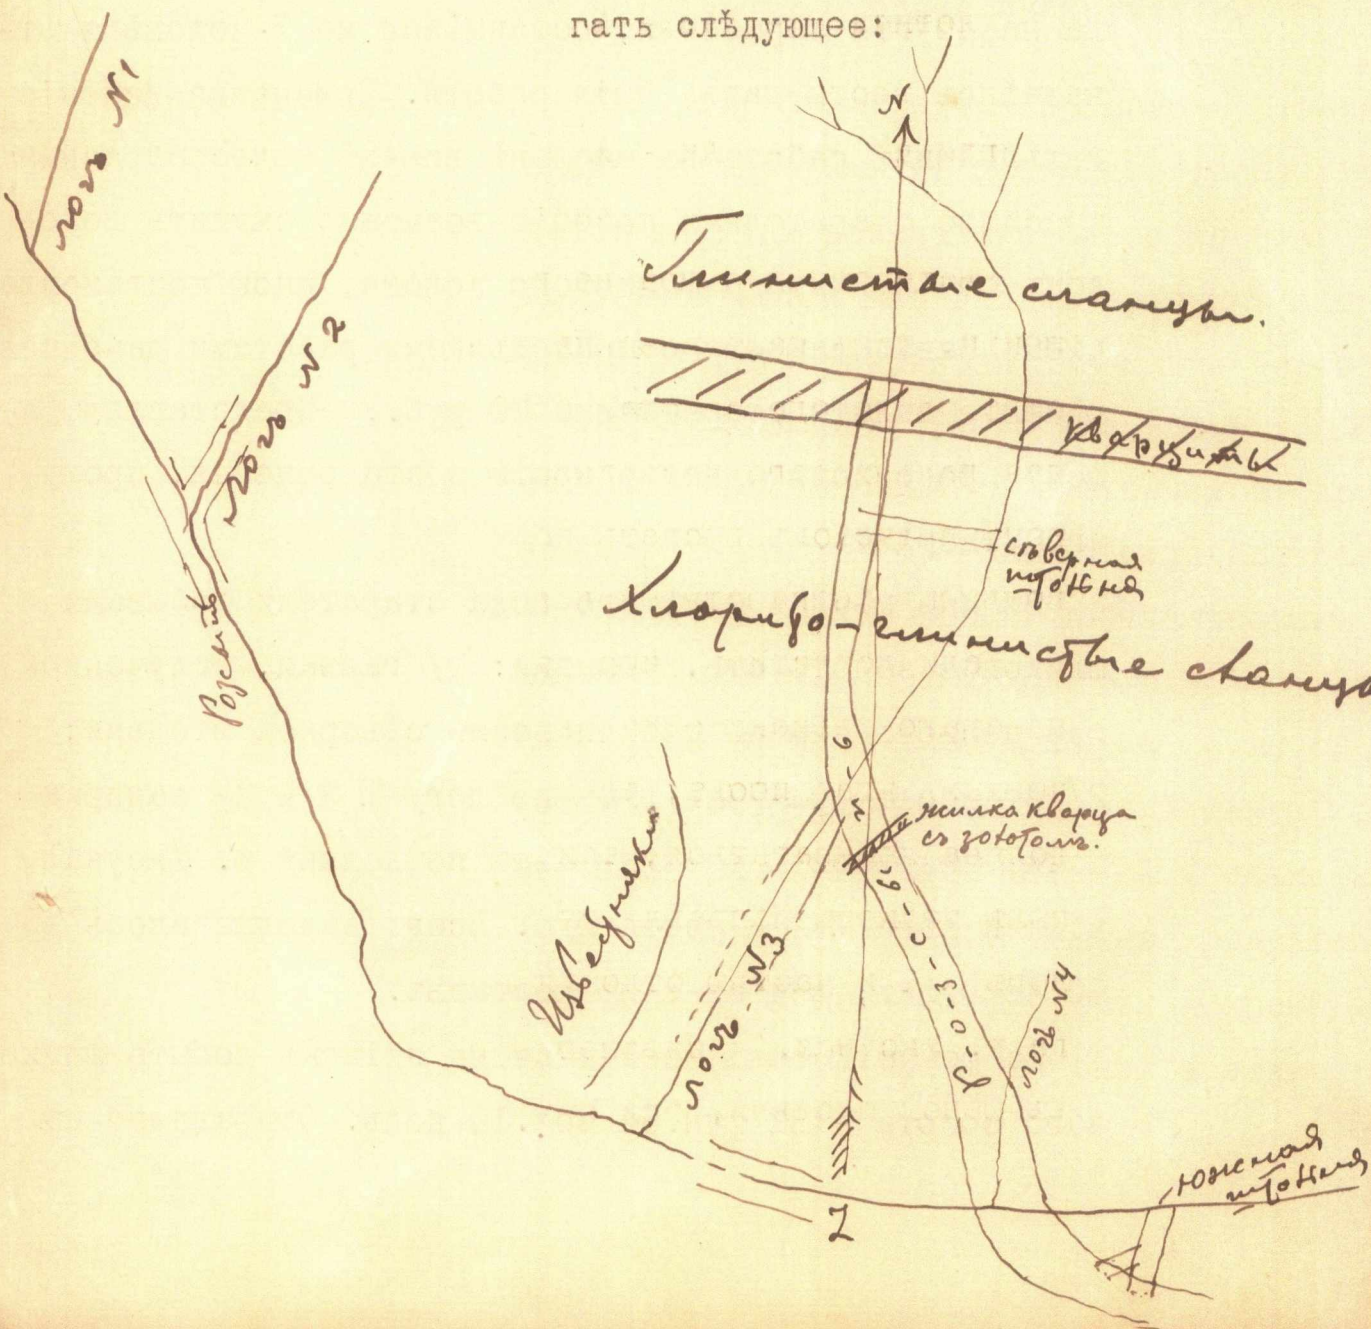 гать слѣдующее:
логъ N1
N
Глинистые сланцы.
логъ N 2
кварциты
сѣверная
штольня
Хлорито-глинистые сланцы
жилка кварца
съ золотомъ.
Известняки
логъ N3
логъ N4
южная
штольня